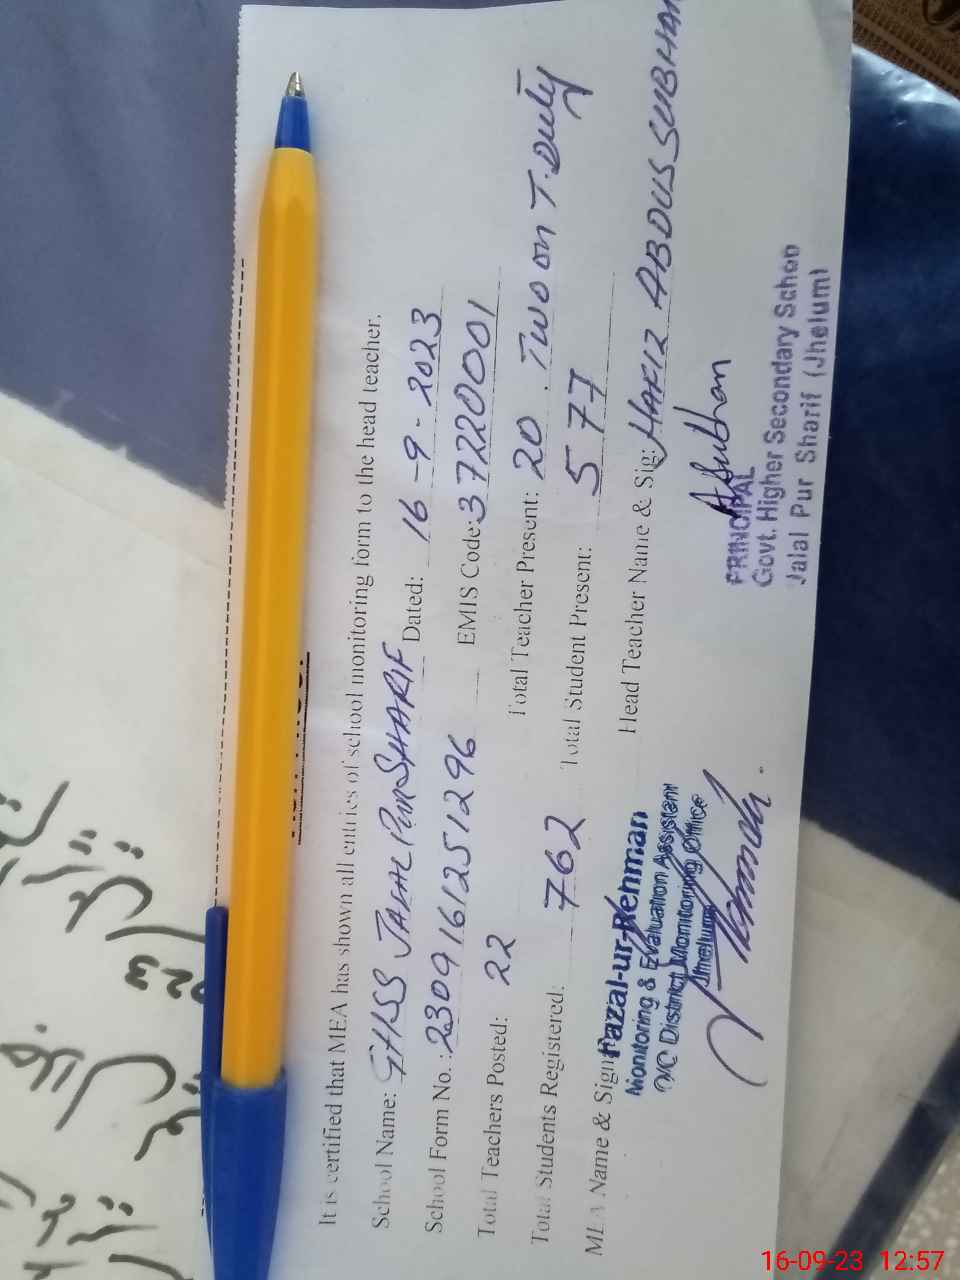 It is certified that MEA has shown all entries of school monitoring form to the head teacher.
School Name: GHSS JALAL PUR SHARIF Dated: 16-9-2023
School Form No.: 2309161251296 EMIS Code: 37220001
Total Teachers Posted: 22 Total Teacher Present: 20. Two on T. Duty
Total Students Registered: 762 Total Student Present: 577
MEA Name & Sign: Fazal-ur-Rehman Head Teacher Name & Sig: HAFIZ ABDUS SUBHAN
Monitoring & Evaluation Assistant
District Monitoring Office
Jhelum
ASubhan
PRINCIPAL
Govt. Higher Secondary School
Jalal Pur Sharif (Jhelum)
16-09-23 12:57